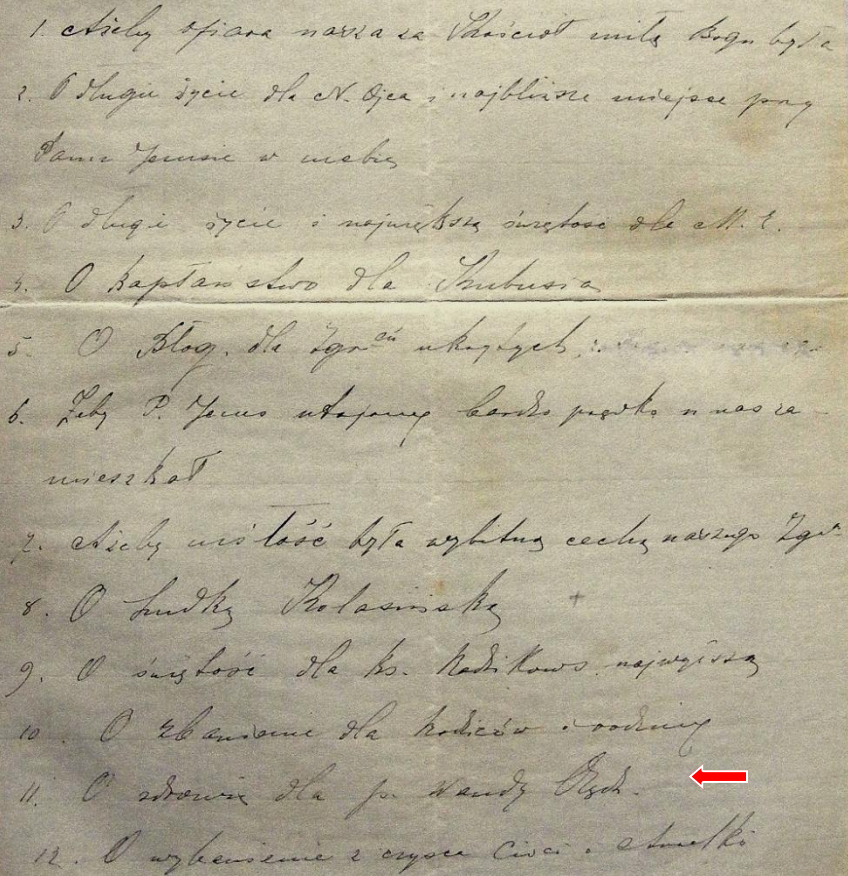 1. Ażeby ofiara nasza za Kościół miłą Bogu była
2. O długie życie dla N. Ojca i najbliższe miejsce przy
Panu Jezusie w niebie
3. O długie życie i największą świętość dla M. E.
4. O kapłaństwo dla Kubusia
5. O Błog. dla Zgrceń ukrytych
6. Żeby P. Jezus utajony bardzo prędko u nas za-
mieszkał
7. Ażeby miłość była wybitną cechą naszego Zgr.
8. O Ludkę Kolasińską +
9. O świętość dla ks. najwyższą
10. O zbawienie dla Rodziców i rodziny
11. O zdrowie dla p. Wandy
12. O wybawienie z czyśca Cioci i Anielki